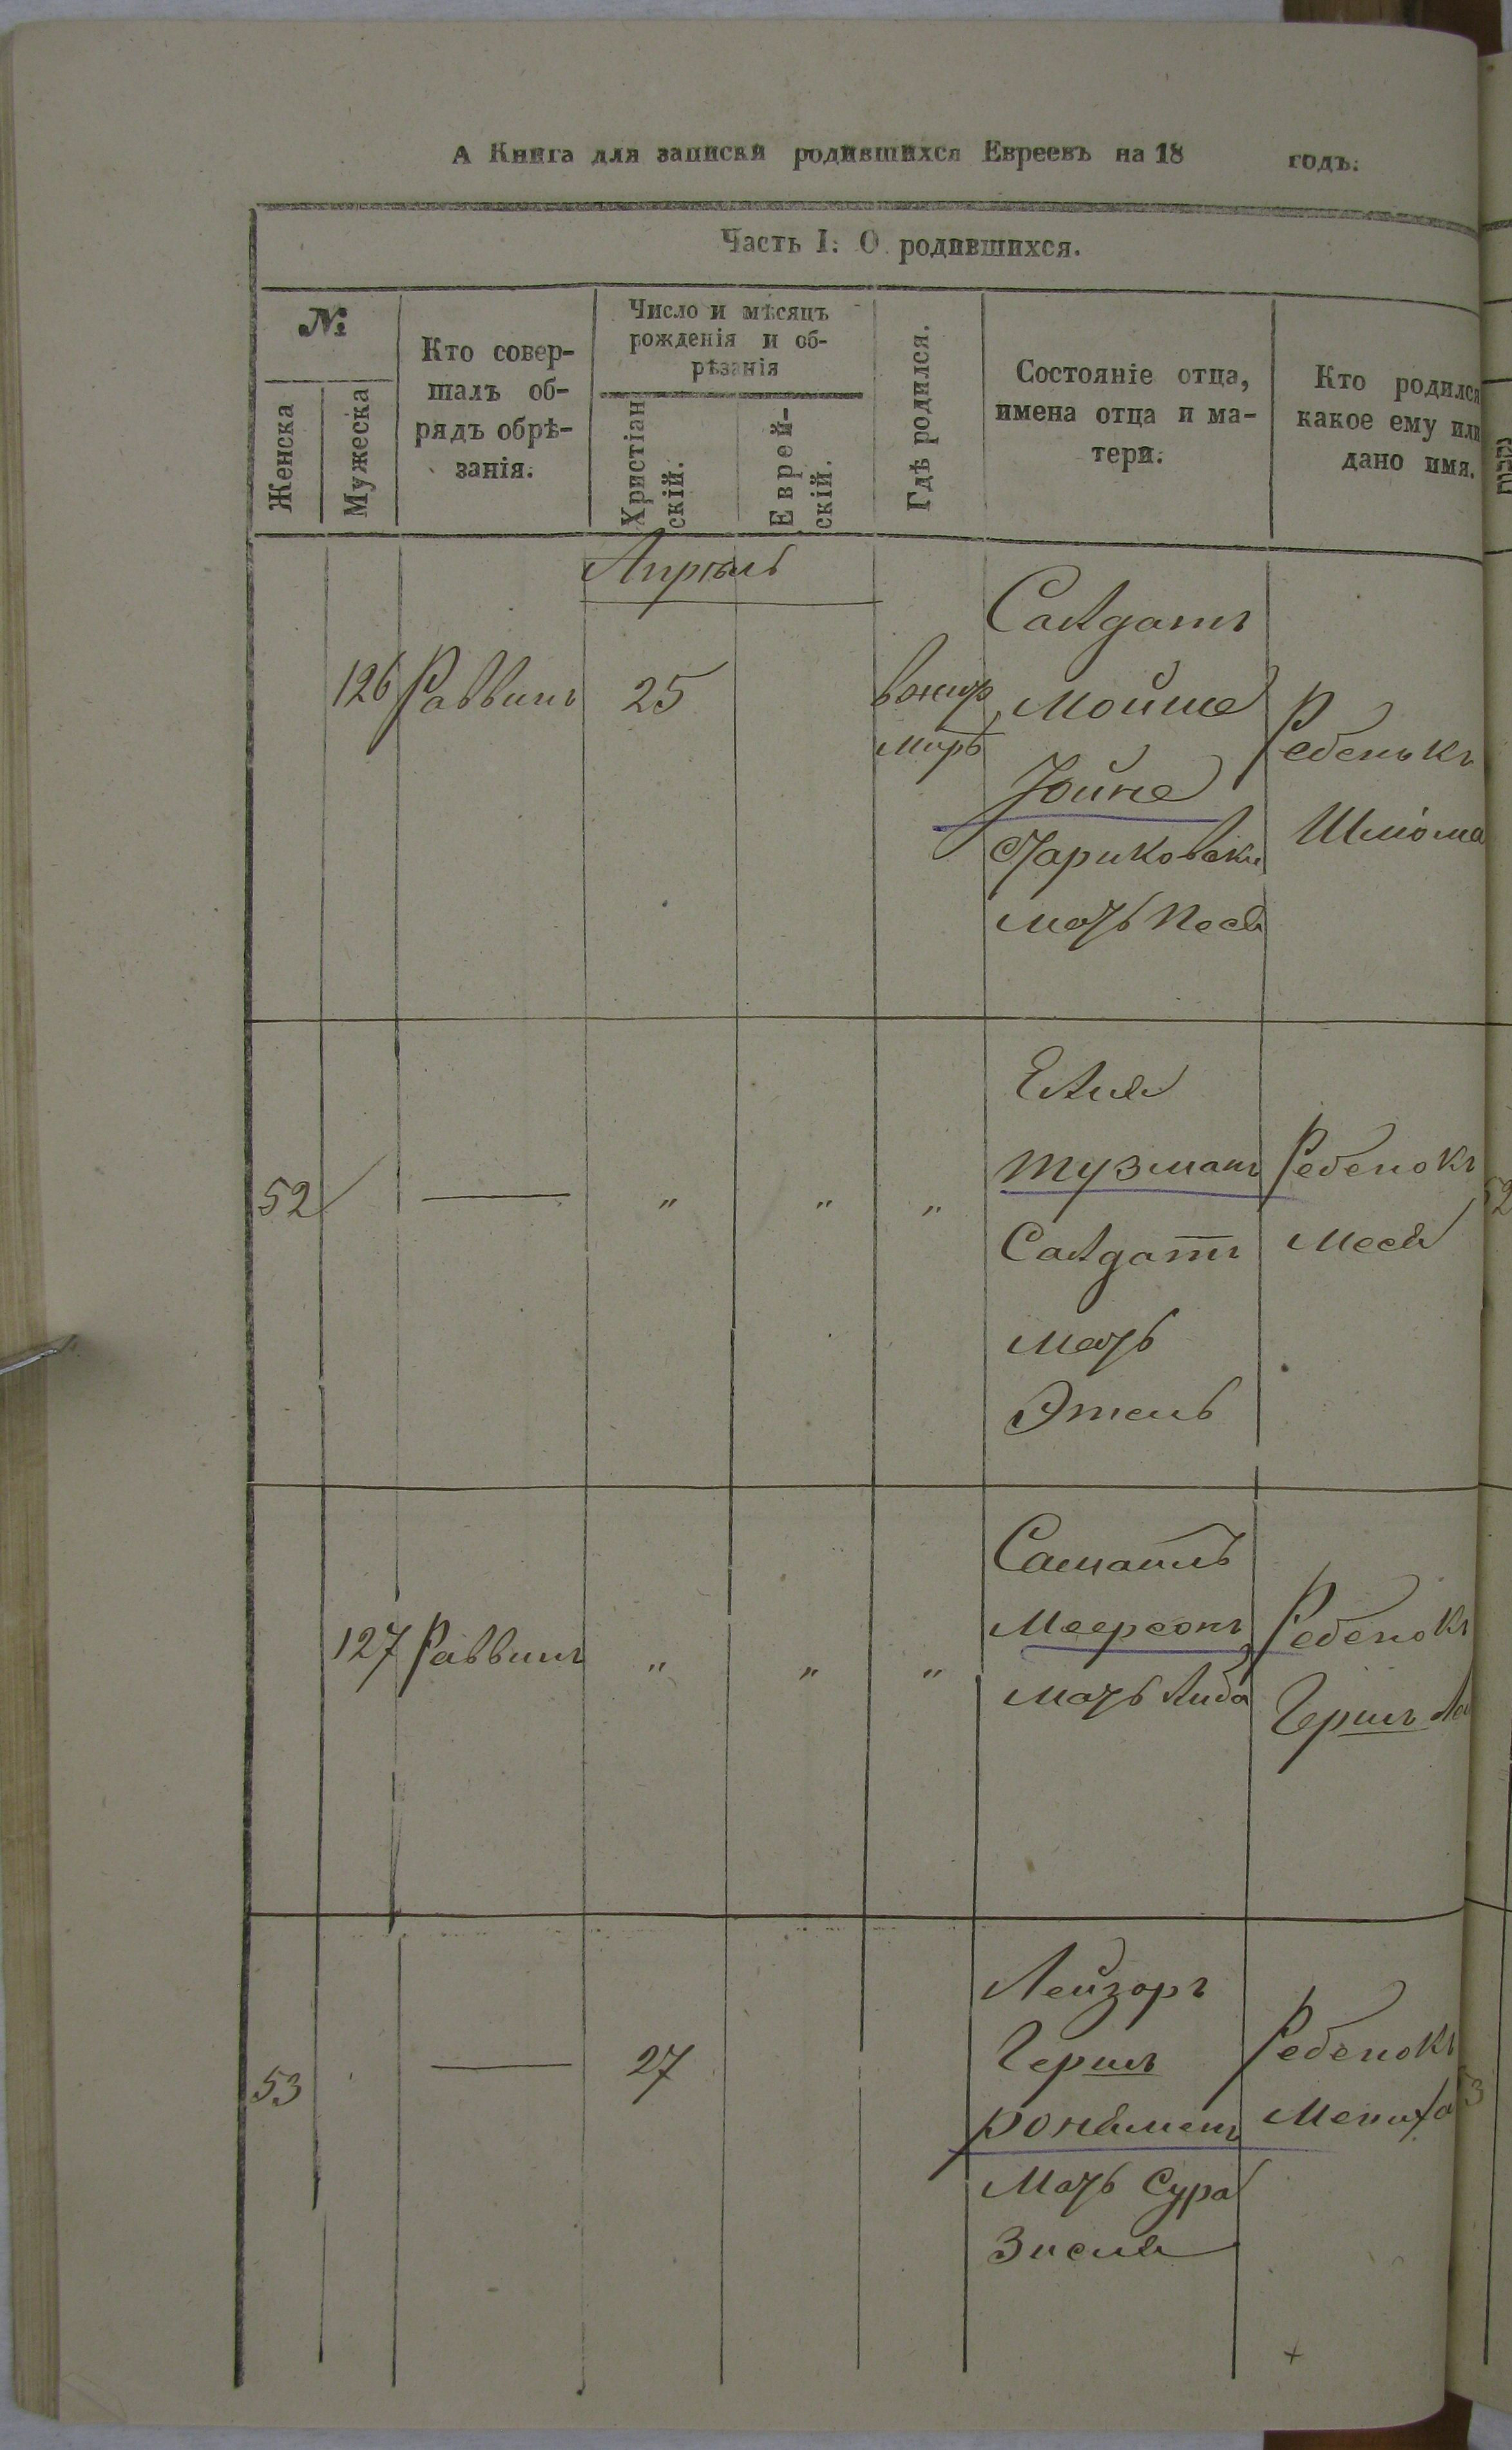 А Книга для записки родившихся Евреевъ на 18 годъ.
Часть I. О родившихся.
№
Женска
Мужеска
Кто совер-
шалъ об-
рядъ обрѣ-
занія.
Число и мѣсяцъ
рожденія и об-
рѣзанія
Христіан
скій.
Еврей-
скій.
Гдѣ родился.
Состояніе отца,
имена отца и ма-
тери.
Кто родился
какое ему или
дано имя.
Апрѣль
126
Раввинъ
25
вжит
миръ
Салдатъ
Мойше
Іойне
Париковски
мать Песя
Ребенькъ
Шліома
52
"
"
"
Елия
тузманъ
Салдатъ
мать
Этель
Ребенокъ
Меся
52
127
Раввинъ
"
"
"
Меерсонъ
мать Либа
Ребенокъ
Гершъ Ле
53
27
Лейзоръ
Гершъ
мать Сура
Зисля
Ребенокъ
Мениха
53